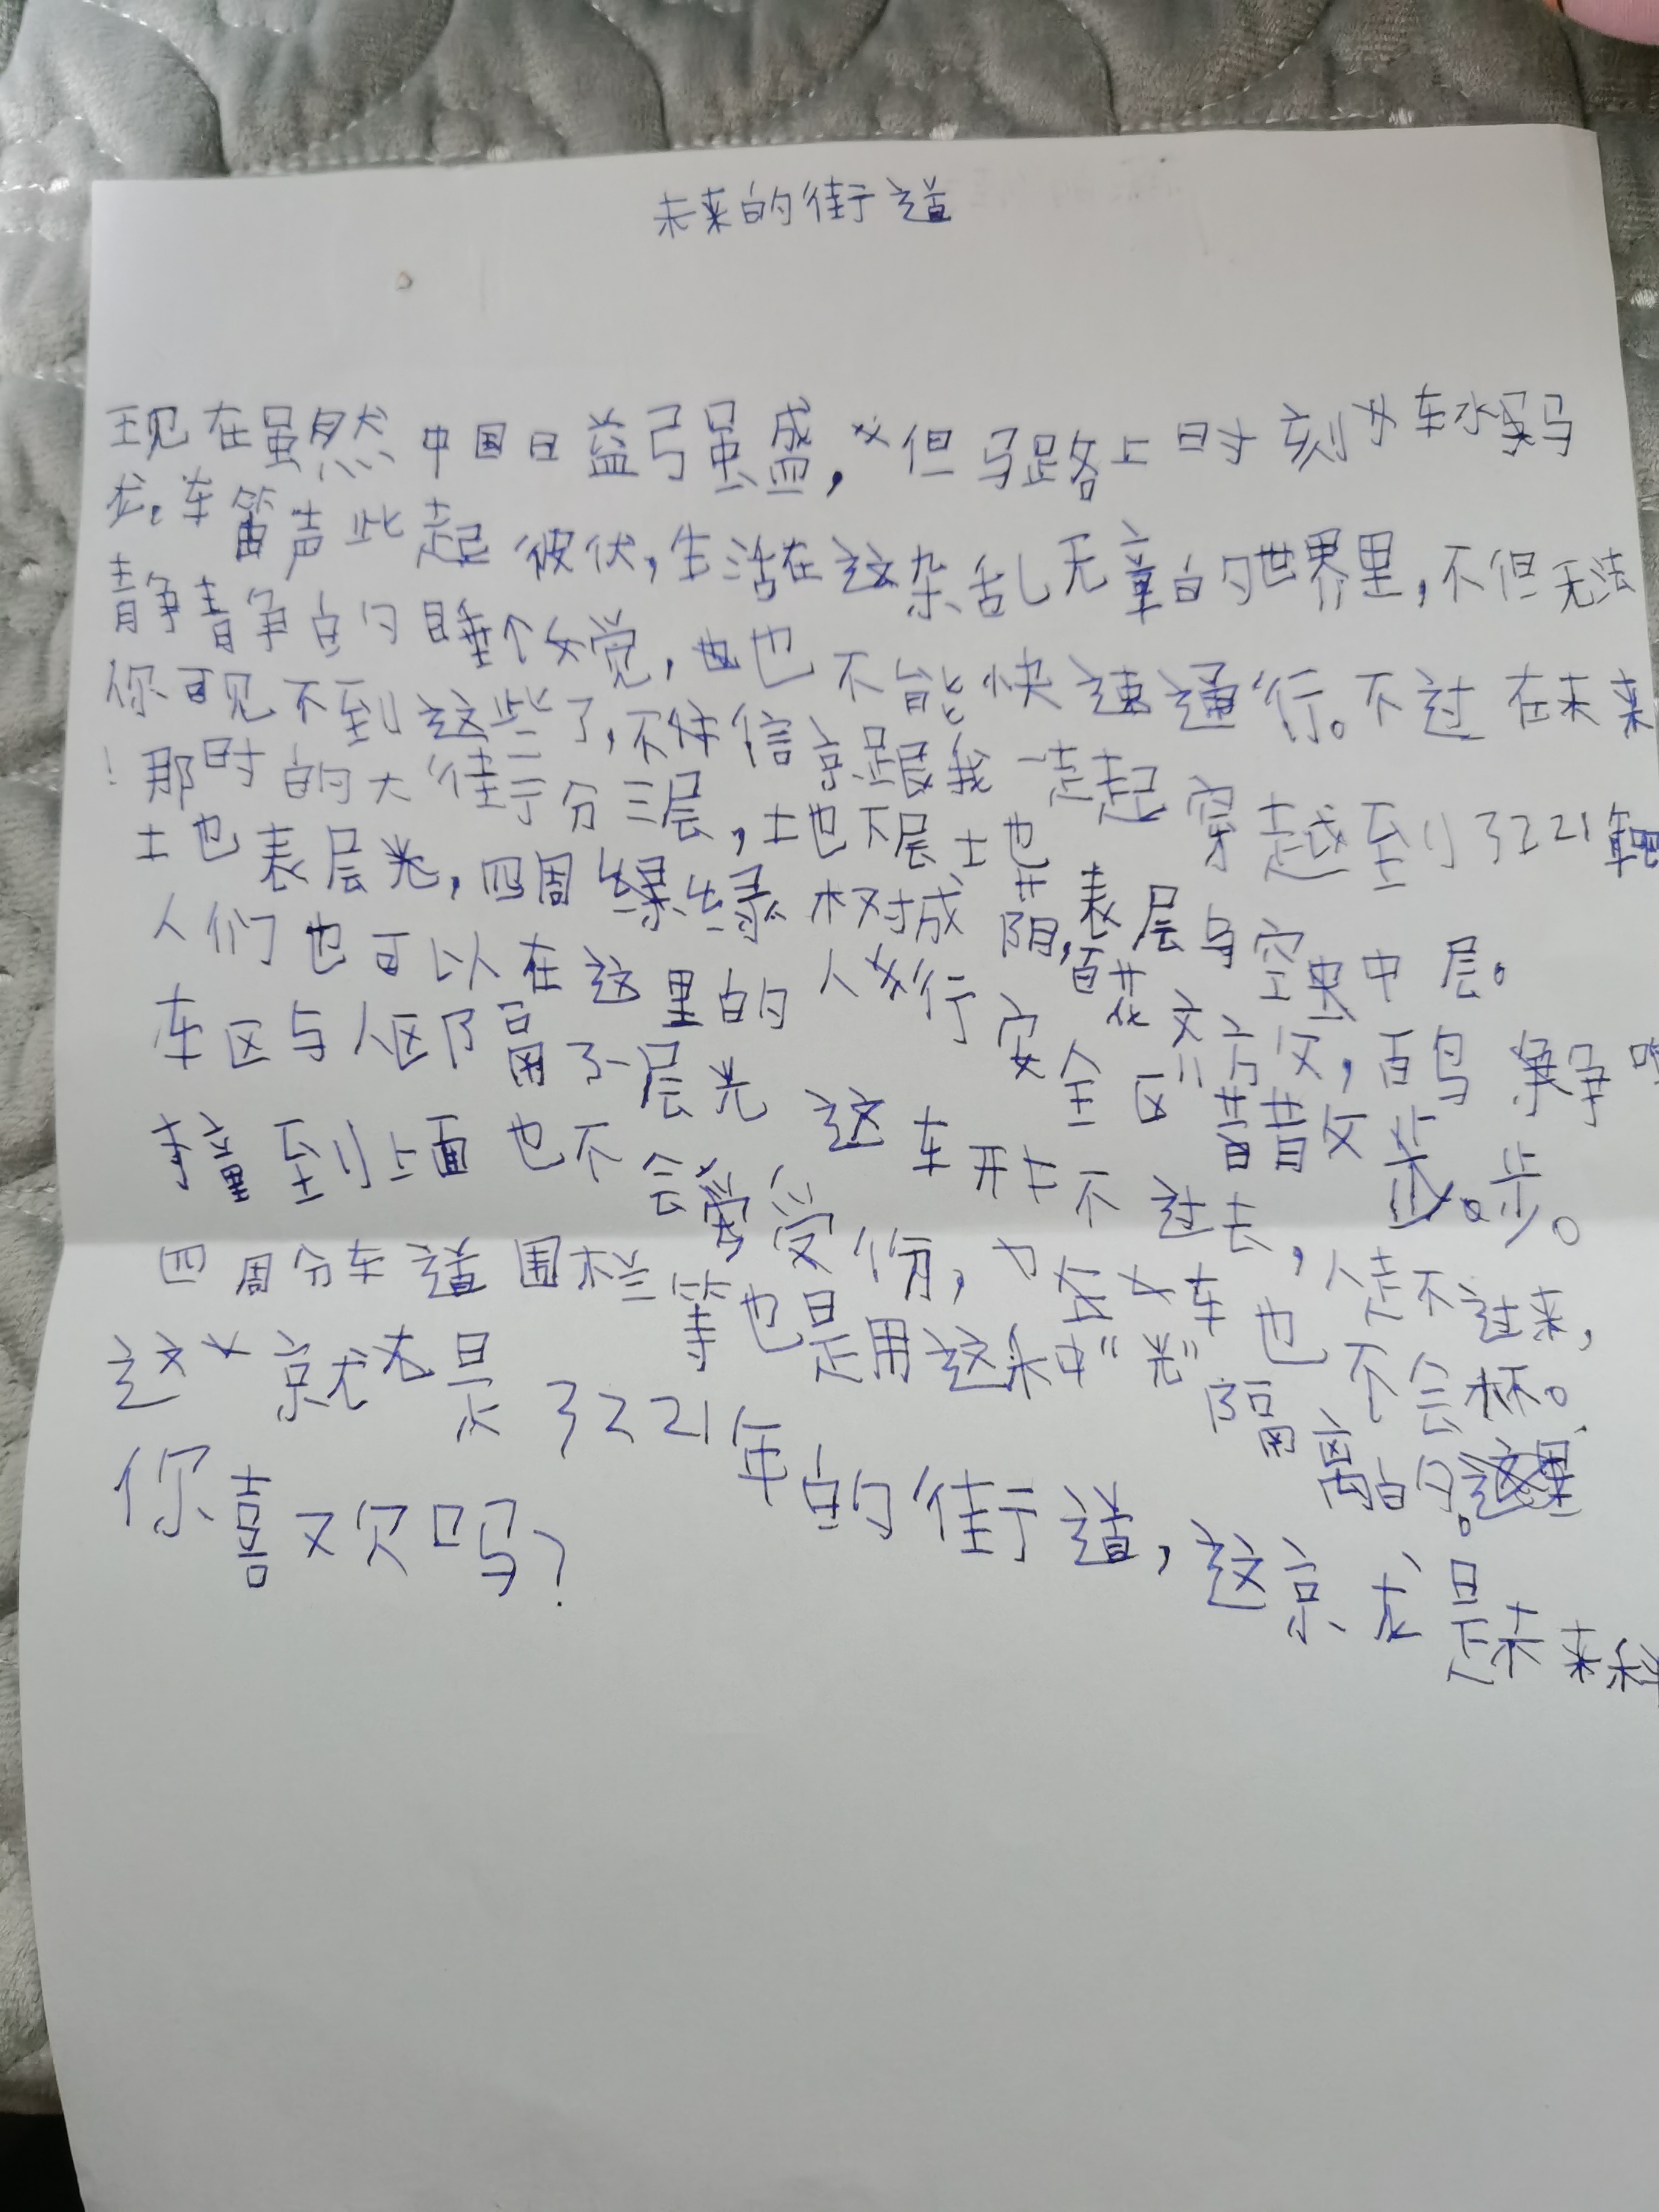 未来的街道
现在虽然中国日益强盛,但马路上时刻车水马
龙,车笛声此起彼伏,生活在这杂乱无章的世界里,不但无法
静静的睡个觉,也不能快速通行。不过在未来
你可见不到这些了,不信就跟我一起穿越到3221年
!那时的大街分三层,地下层地表层与空中层。
地表层光,四周绿树成荫,百花齐放,百鸟争鸣
人们也可以在这里的人行安全区散散步。
车区与人区隔了层光 这车开不过去,人走不过来,
撞到上面也不会受伤,车也不会坏。
四周分车道围栏等也是用这种“光”隔离的。
这就是3221年的街道,这就是未来科
你喜欢吗?